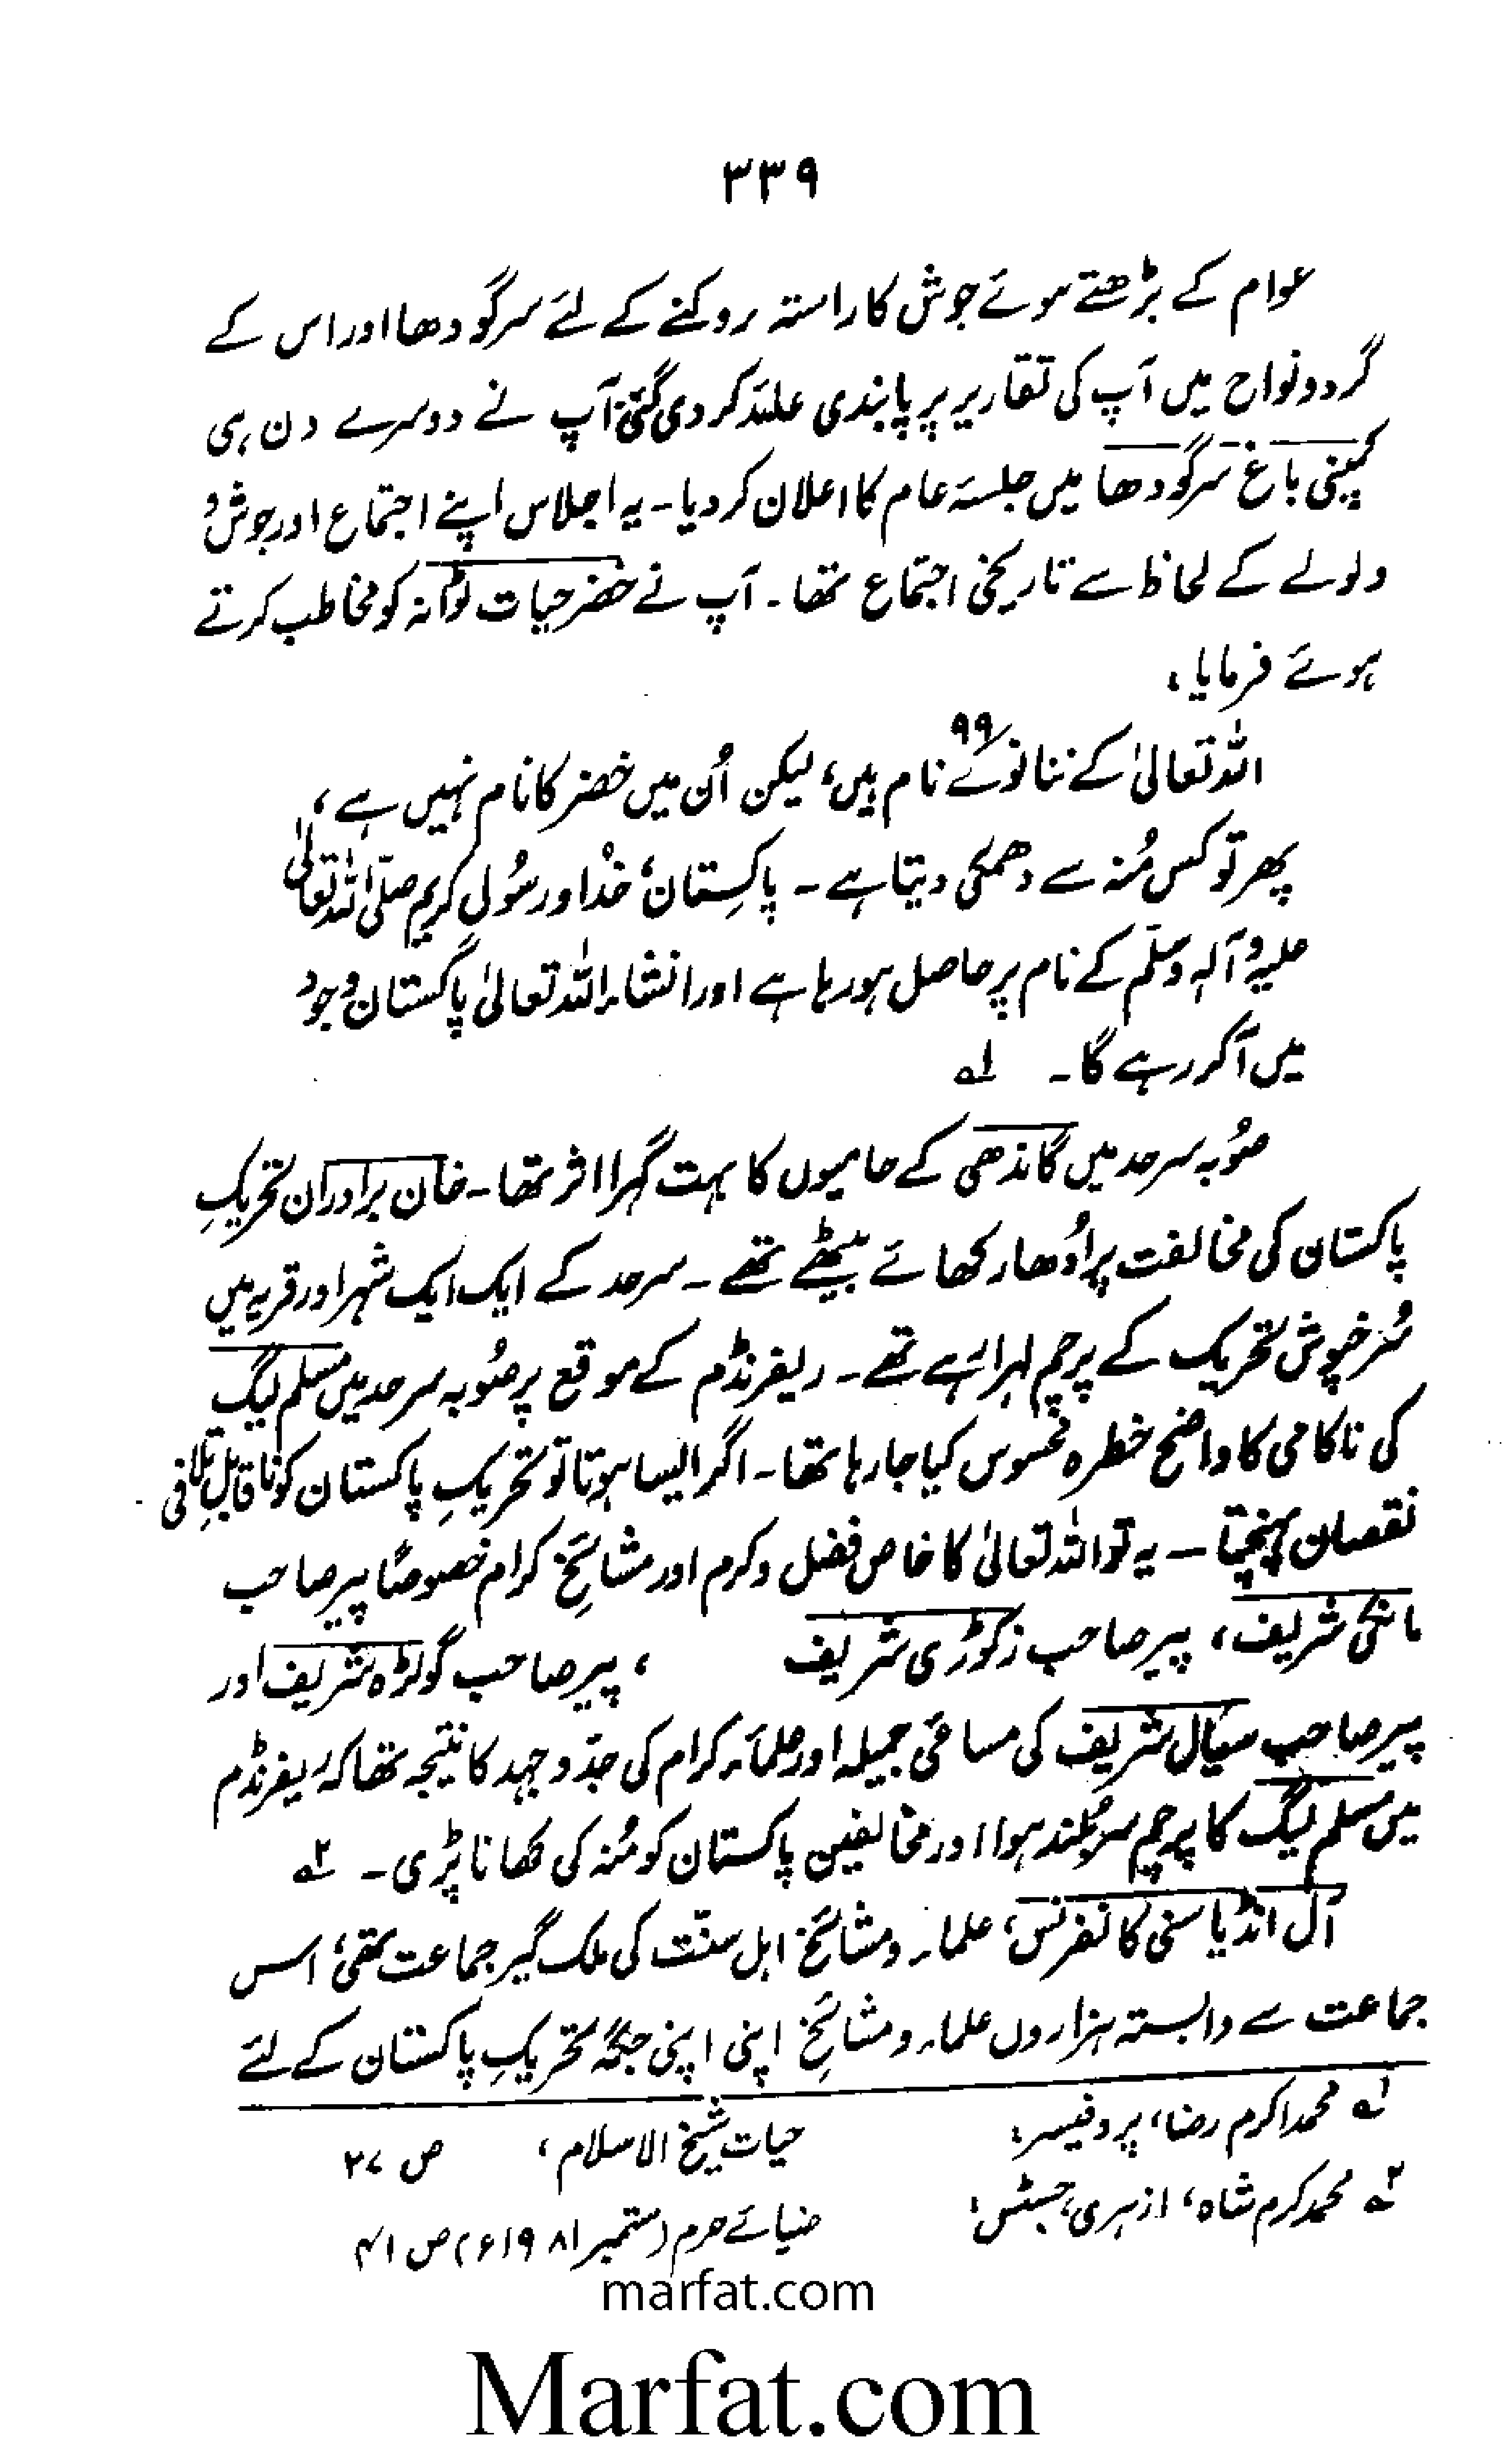 ۳۳۹
عوام کے بڑھتے ہوئے جوش کا راستہ روکنے کے لئے سرگودھا اور اس کے
گرد و نواح میں آپ کی تقاریر پر پابندی عائد کر دی گئی، آپ نے دوسرے دن ہی
کمپنی باغ سرگودھا میں جلسۂ عام کا اعلان کر دیا۔ یہ اجلاس اپنے اجتماع اور جوش و
ولولے کے لحاظ سے تاریخی اجتماع تھا۔ آپ نے خضر حیات ٹوانہ کو مخاطب کرتے
ہوئے فرمایا:
اللہ تعالیٰ کے ننانوے ۹۹ نام ہیں، لیکن اُن میں خضر کا نام نہیں ہے،
پھر تو کس مُنہ سے دھمکی دیتا ہے۔ پاکِستان، خُدا و رسُولِ کریم صلّی اللہ تعالیٰ
علیہ و آلہ وسلّم کے نام پر حاصل ہو رہا ہے اور انشاء اللہ تعالیٰ پاکستان وجود
میں آکر رہے گا۔ ۱؎
صُوبہ سرحد میں گاندھی کے حامیوں کا بہت گہرا اثر تھا۔ خان برادران تحریکِ
پاکستان کی مخالفت پر اُدھار کھائے بیٹھے تھے۔ سرحد کے ایک ایک شہر اور قریہ میں
سُرخپوش تحریک کے پرچم لہرا رہے تھے۔ ریفرنڈم کے موقع پر صُوبہ سرحد میں مسلم لیگ
کی ناکامی کا واضح خطرہ محسوس کیا جا رہا تھا۔ اگر ایسا ہوتا تو تحریکِ پاکستان کو ناقابلِ تلافی
نقصان پہنچتا ــ یہ تو اللہ تعالیٰ کا خاص فضل و کرم اور مشائخِ کرام خصوصاً پیر صاحب
مانکی شریف، پیر صاحب زکوڑی شریف ، پیر صاحب گولڑہ شریف اور
پیر صاحب سیال شریف کی مساعیٔ جمیلہ اور علمائے کرام کی جدّ و جہد کا نتیجہ تھا کہ ریفرنڈم
میں مسلم لیگ کا پرچم سربلند ہوا اور مخالفینِ پاکستان کو مُنہ کی کھانا پڑی۔ ۲؎
آل انڈیا سنی کانفرنس، علماء و مشائخ اہل سنّت کی ملک گیر جماعت تھی، اس
جماعت سے وابستہ ہزاروں علماء و مشائخ اپنی اپنی جگہ تحریکِ پاکستان کے لئے
۱؎ محمد اکرم رضا، پروفیسر: حیات شیخ الاسلام، ص ۳۷
۲؎ محمد کرم شاہ، ازہری، جسٹس: ضیائے حرم (ستمبر ۱۹۸۱ء) ص ۴۱
marfat.com
Marfat.com